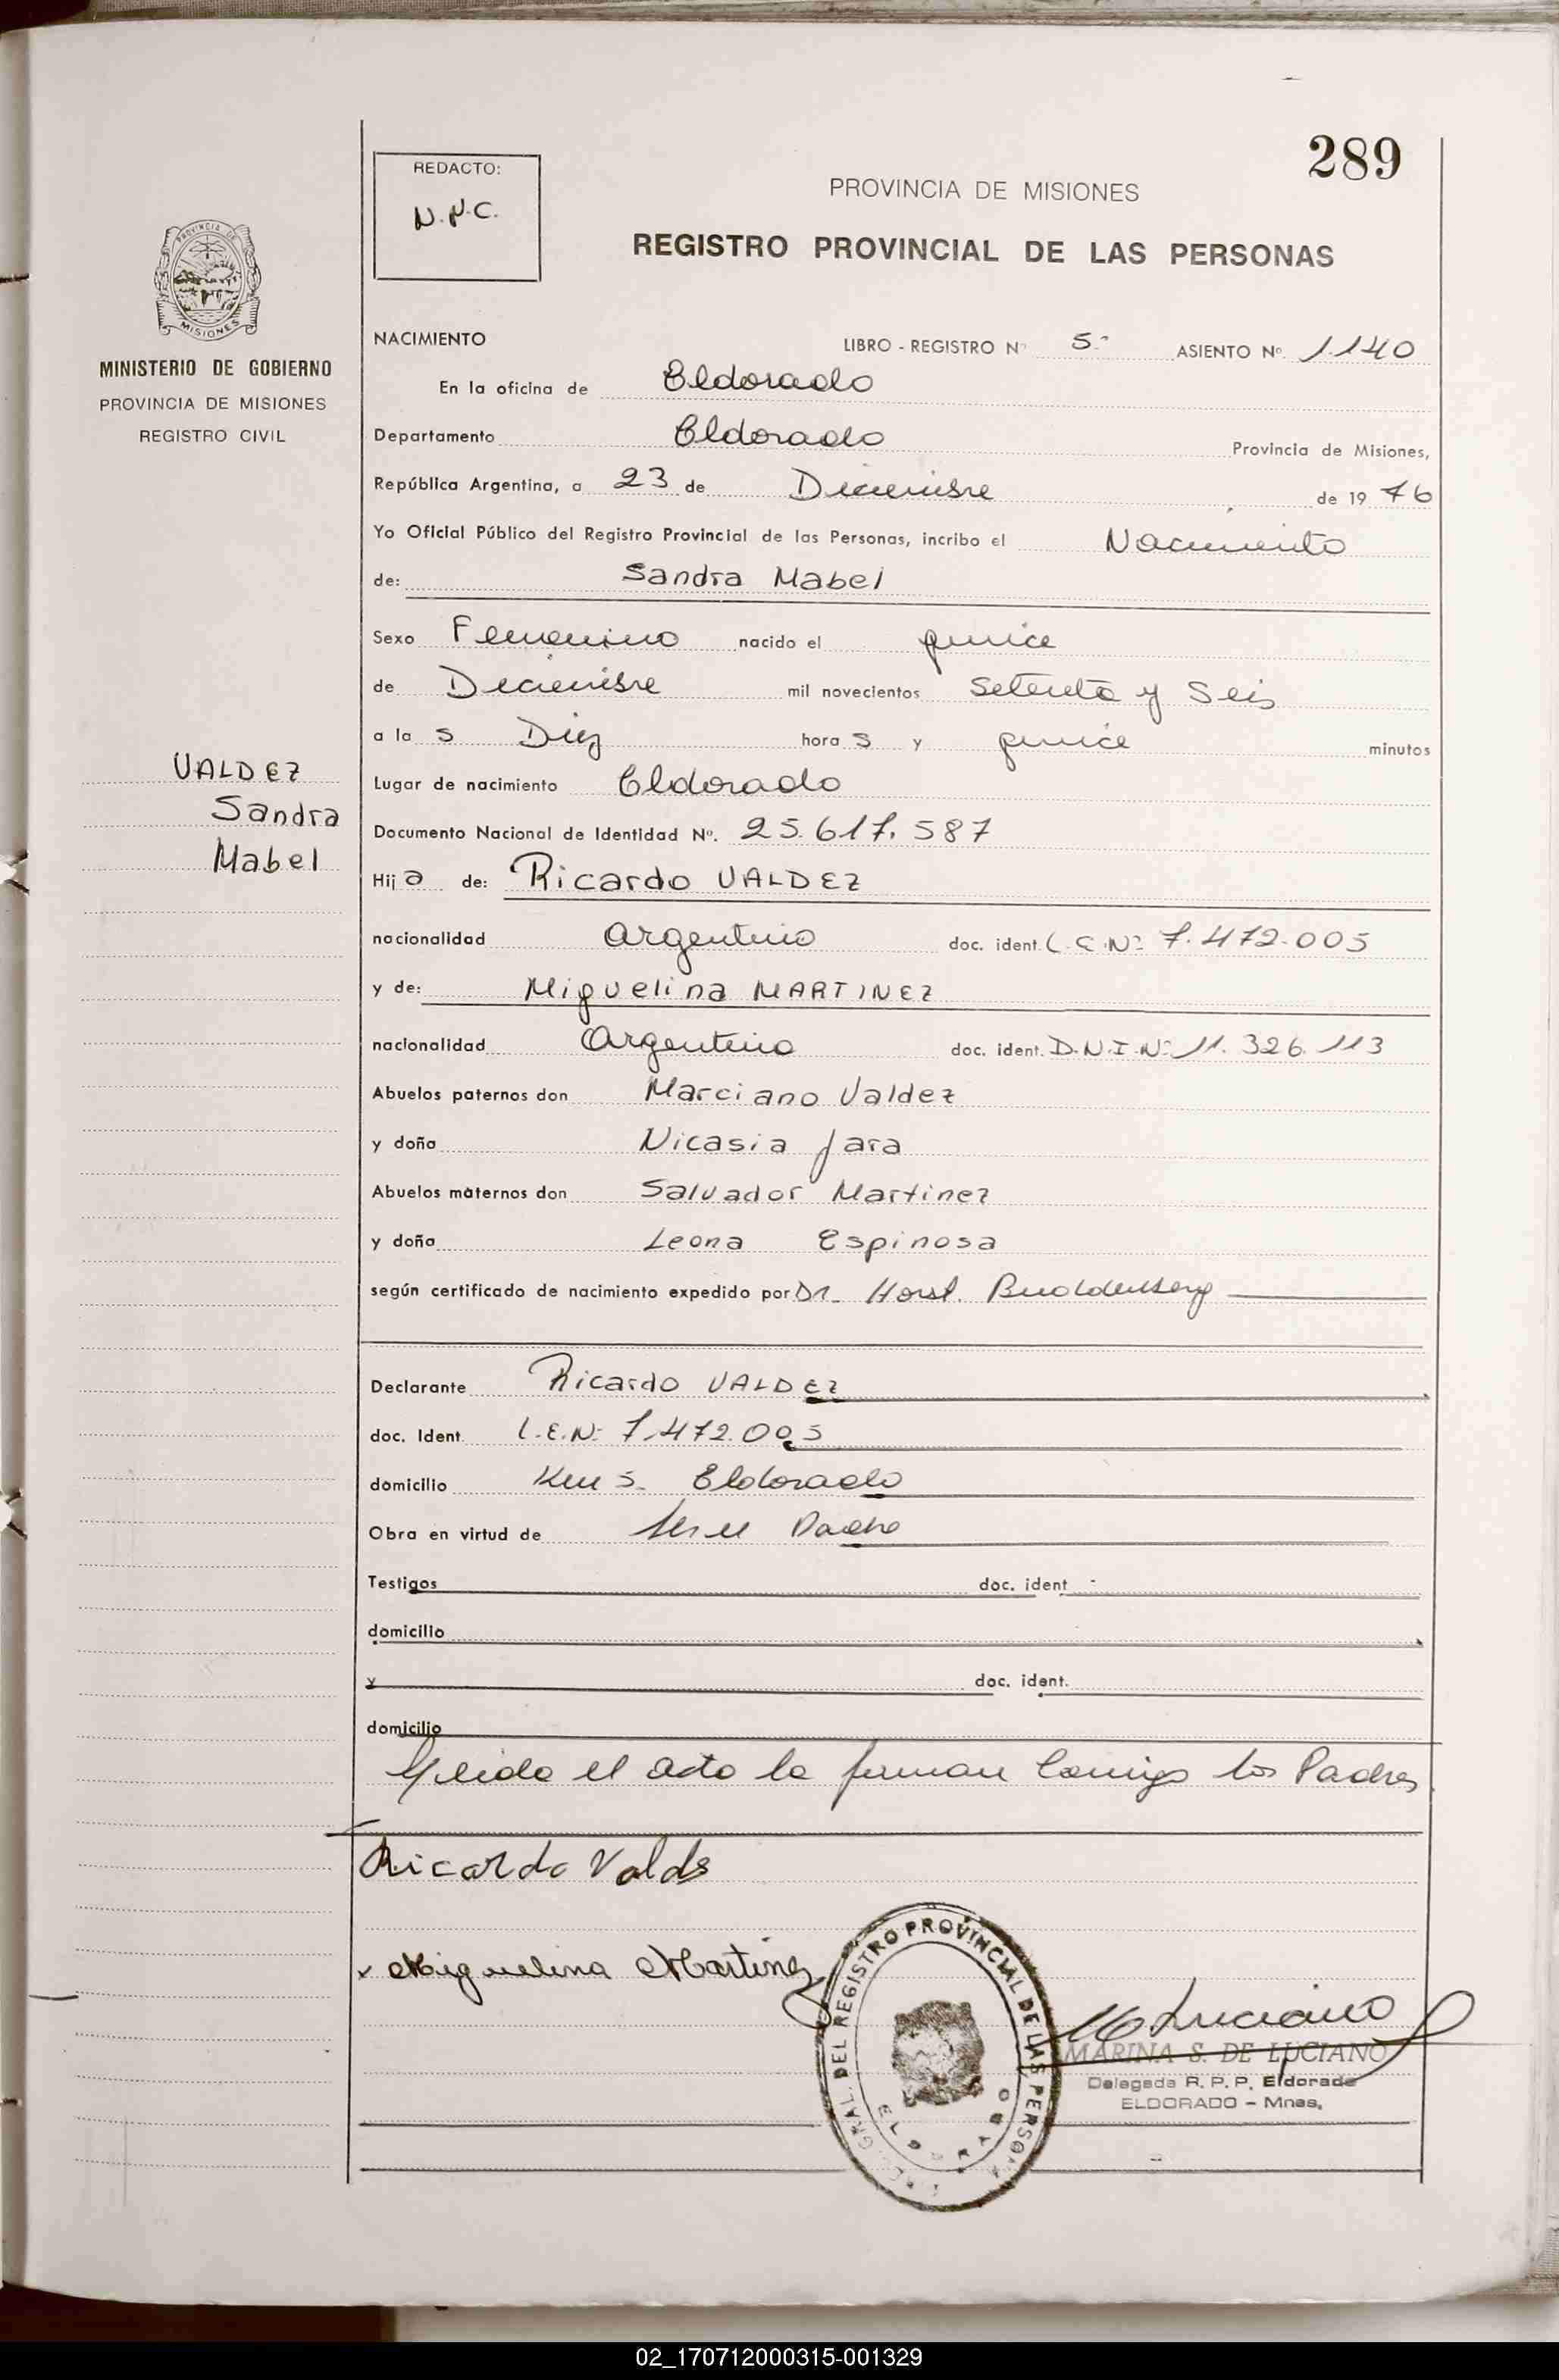 289
REDACTO:
N.N.C.
PROVINCIA DE MISIONES
REGISTRO PROVINCIAL DE LAS PERSONAS
MISIONES
MINISTERIO DE GOBIERNO
PROVINCIA DE MISIONES
REGISTRO CIVIL
NACIMIENTO LIBRO - REGISTRO Nº 5º ASIENTO Nº 1.140
En la oficina de Eldorado
Departamento Eldorado Provincia de Misiones,
República Argentina, a 23 de Diciembre de 19 76
Yo Oficial Público del Registro Provincial de las Personas, incribo el Nacimiento
de: Sandra Mabel
Sexo Femenino nacido el quince
de Diciembre mil novecientos Setenta y Seis
a la s Diez hora s y quince minutos
VALDEZ
Sandra
Mabel
Lugar de nacimiento Eldorado
Documento Nacional de Identidad Nº. 25.617.587
Hij a de: Ricardo VALDEZ
nacionalidad Argentino doc. ident. L.E.Nº 7.472.005
y de: Miguelina MARTINEZ
nacionalidad Argentina doc. ident. D.N.I.Nº 11.326.113
Abuelos paternos don Marciano Valdez
y doña Nicasia Jara
Abuelos maternos don Salvador Martinez
y doña Leona Espinosa
según certificado de nacimiento expedido por Dr. Horst.
Declarante Ricardo VALDEZ
doc. Ident. L.E.Nº 7.472.005
domicilio Km 5. Eldorado
Obra en virtud de Ser el Padre
Testigos doc. ident.
domicilio
y doc. ident.
domicilio
Leida el acta la firman Conmigo los Padres
Ricardo Valds
x Miguelina Martinez
GRAL. DEL REGISTRO PROVINCIAL DE LAS PERSONAS
ELDORADO
M Luciano
MARINA S. DE LUCIANO
Delegada R. P. P. Eldorado
ELDORADO - Mnes.
02_170712000315-001329